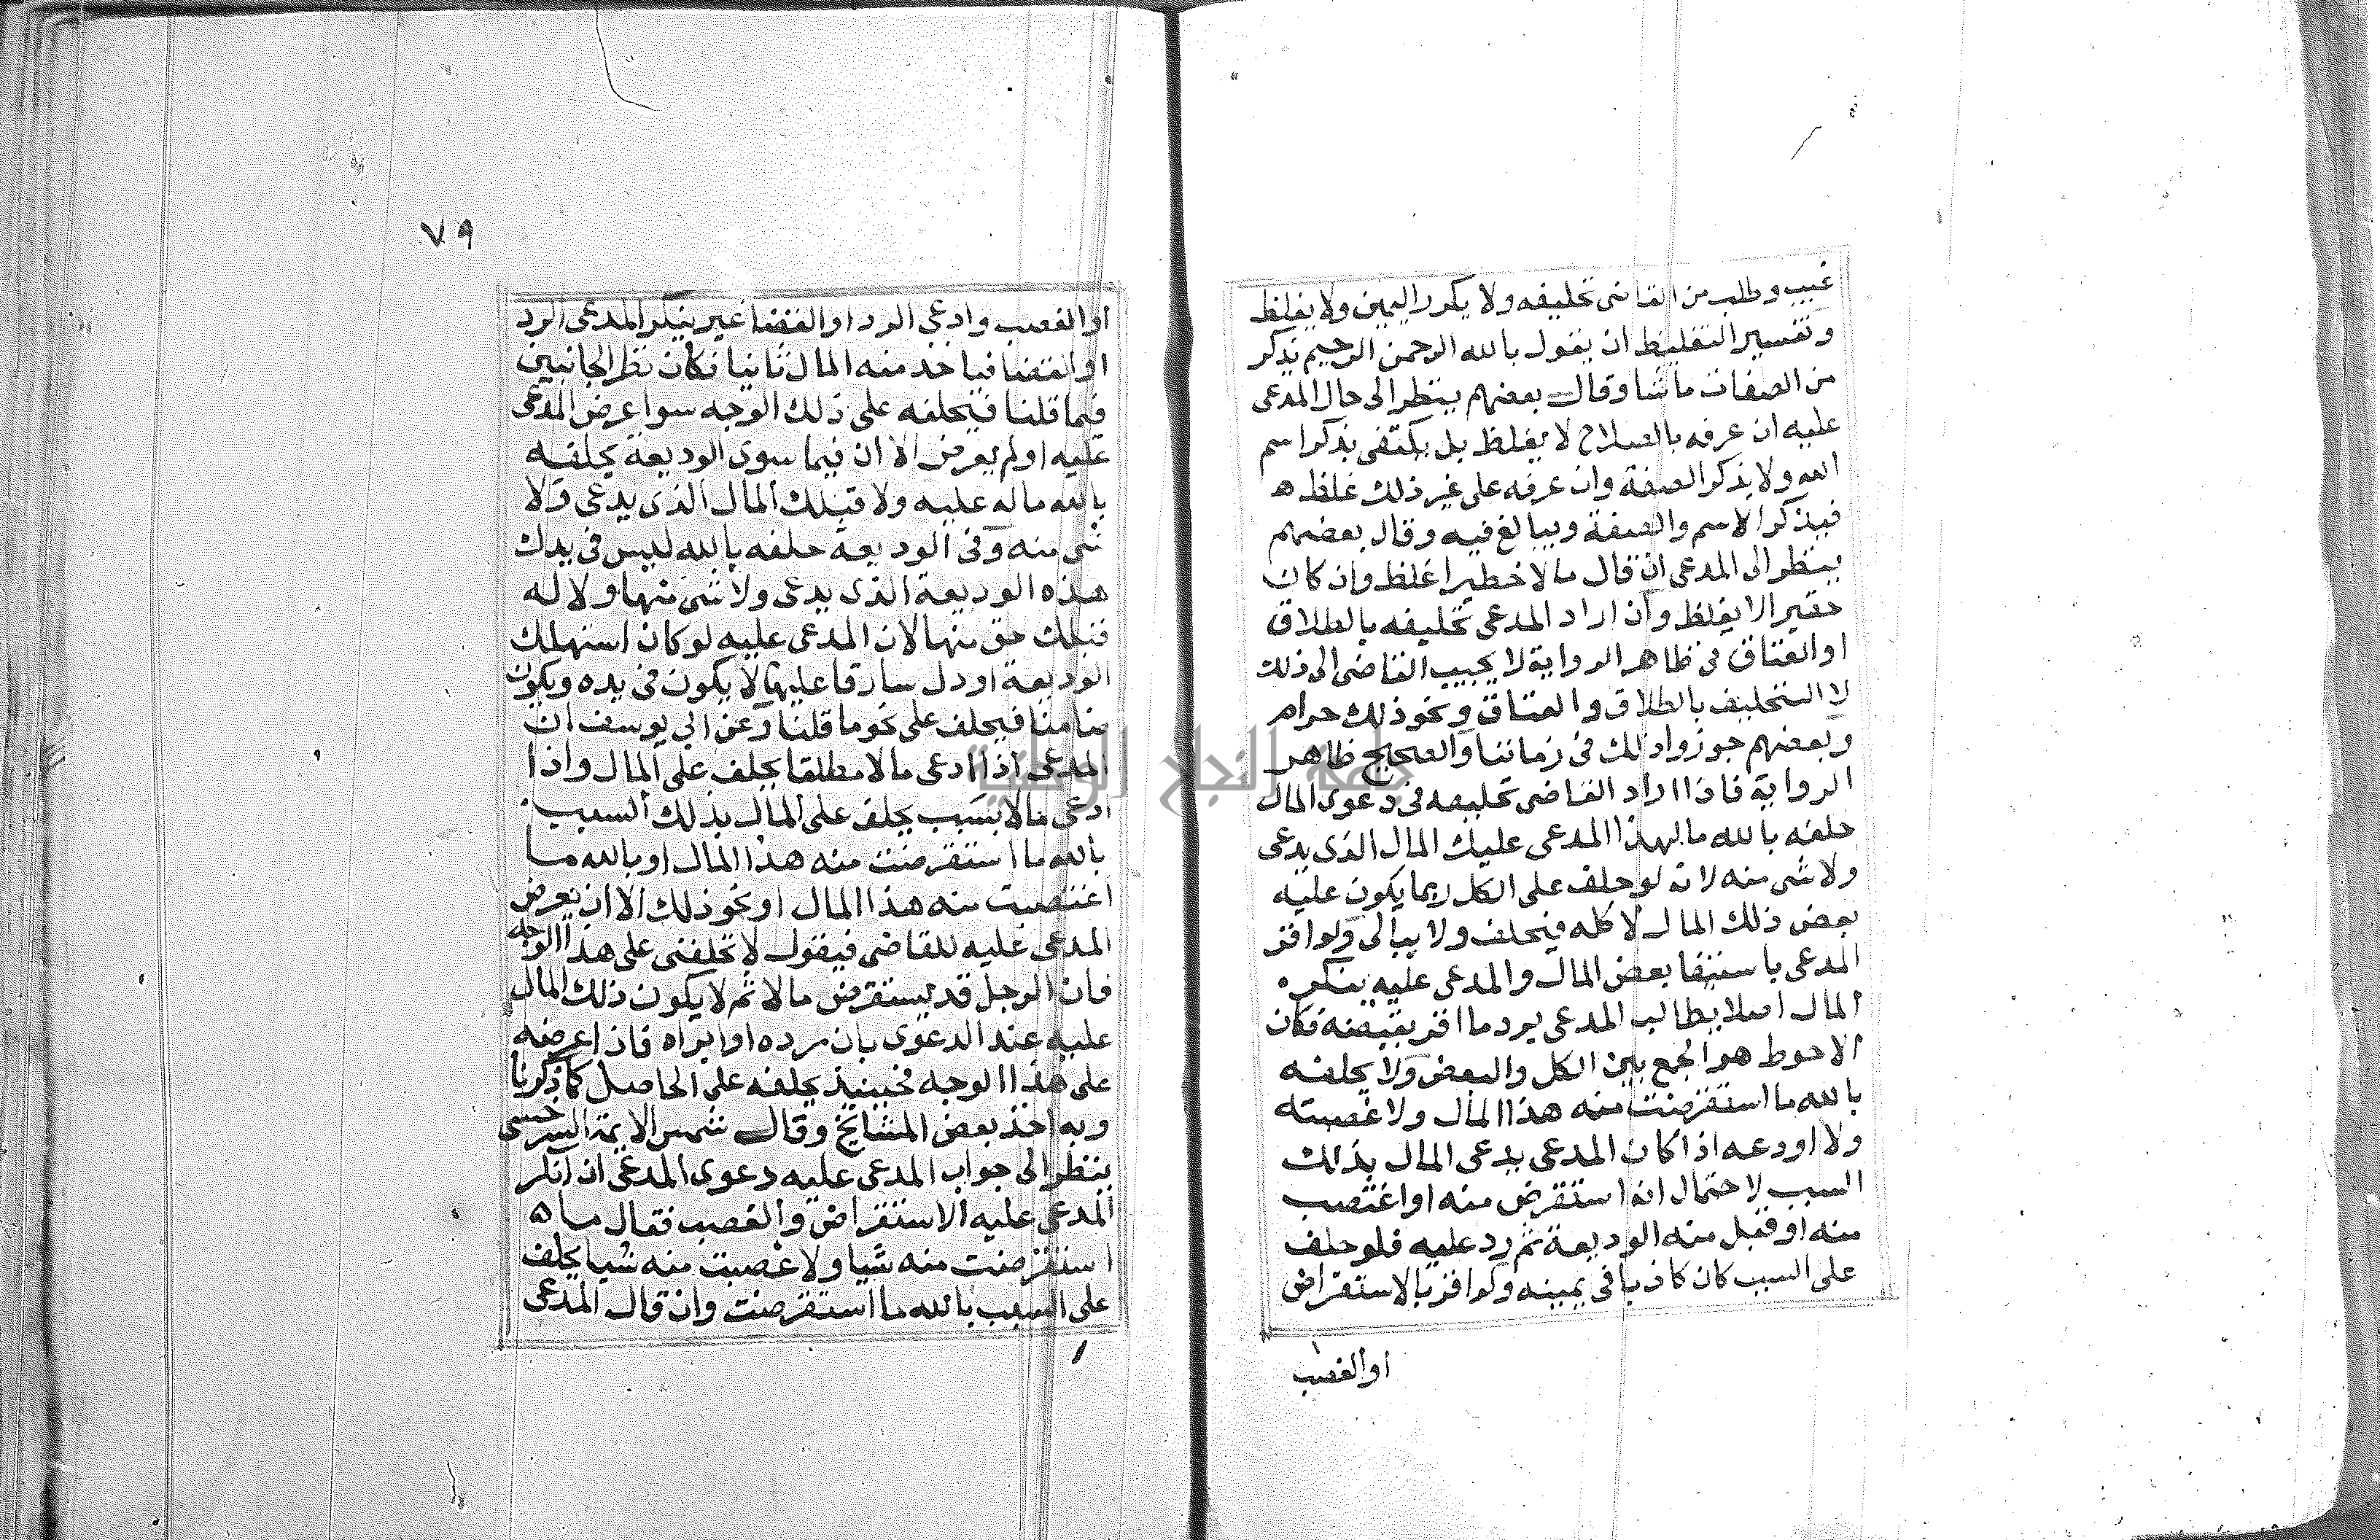 غيب وطلب من القاضى تحليفه ولا يكرر اليمين ولا يغلظ
وتفسير التغليظ ان يقول بالله الرحمن الرحيم يذكر
من الصفات ما شا وقال بعضهم ينظر الى حال المدعى
عليه ان عرفه بالصلاح لا يغلظ بل يكتفى بذكر اسم
الله ولا يذكر الصفة وان عرفه على غير ذلك غلظ ه
فيذكر الاسم والصفة ويبالغ فيه وقال بعضهم
ينظر الى المدعى ان قال مالا خطيرا غلظ وان كان
حقيرا لا يغلظ وان اراد المدعى تحليفه بالطلاق
او العتاق فى ظاهر الرواية لا يجيب القاضى الى ذلك
لا التحليف بالطلاق والعتاق ونحو ذلك حرام
وبعضهم جوزوا ذلك فى زماننا والصحيح ظاهر
الرواية فاذا اراد القاضى تحليفه فى دعوى المال
حلفه بالله ما لهذا المدعى عليك المال الذى يدعى
ولا شى منه لانه لو حلف على الكل ربما يكون عليه
بعض ذلك المال لا كله فيحلف ولا يبالى ولو اقر
المدعى باستيفا بعض المال والمدعى عليه ينكره
المال اصلا يطالب المدعى برد ما اقر بقبضه فكان
الاحوط هو الجمع بين الكل والبعض ولا يحلفه
بالله ما استقرضت منه هذا المال ولا غصبته
ولا اودعه اذا كان المدعى يدعى المال بذلك
السبب لاحتمال انه استقرض منه او اغتصب
منه او قبل منه الوديعة ثم رد عليه فلو حلف
على السبب كان كاذبا فى يمينه ولو اقر بالاستقراض
او الغصب
٧٩
او الغصب وادعى الرد او القضا غير ينكر المدعى الرد
او القضا فياخد منه المال ثانيا فكان نظر الجانبين
فيما قلنا فيحلفه على ذلك الوجه سوا عرض المدعى
عليه او لم يعرض الا ان فيما سوى الوديعة يحلفه
بالله ماله عليه ولا قبلك المال الذى يدعى ولا
شى منه وفى الوديعة حلفه بالله ليس فى يدك
هذه الوديعة الذى يدعى ولا شى منها ولا له
قبلك حق منها لان المدعى عليه لو كان استهلك
الوديعة او دل سارقا عليها لا يكون فى يده ويكون
ضامنا فيحلف على نحو ما قلنا وعن ابى يوسف ان
المدعى اذا ادعى مالا مطلقا يحلف على المال واذا
ادعى مالا بسبب يحلف على المال بذلك السبب
بالله ما استقرضت منه هذا المال او بالله ما
اغتصبت منه هذا المال او نحو ذلك الا ان يعرض
المدعى عليه للقاضى فيقول لا تحلفنى على هذا الوجه
فان الرجل قد يستقرض مالا ثم لا يكون ذلك المال
عليه عند الدعوى بان رده او ابراه فان اعرضه
على هذا الوجه فحينيذ يحلفه على الحاصل كما ذكرنا
وبه اخذ بعض المشايخ وقال شمس الايمة السرخسى
ينظر الى جواب المدعى عليه دعوى المدعى ان انكر
المدعى عليه الاستقراض والغصب فقال ما ه
استقرضت منه شيا ولا غصبت منه شيا يحلف
على السبب بالله ما استقرضت وان قال المدعى
جامعة النجاح الوطنية